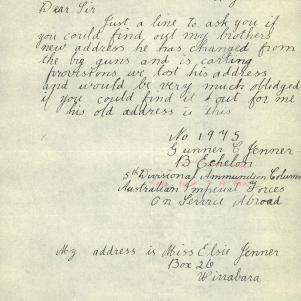 Dear Sir
Just a line to ask you if
you could find out my brothers
new address he has changed from
the big guns and is carting
provisions we lost his address
and would be very much oblidged
if you could find it out for me
his old address is this
No 1975
Gunner C Jenner
B Echelon
5th Divisional Ammunition Column
Australian Imperial Forces
On Service Abroad
My address is Miss Elsie Jenner
Box 26
Wirrabara